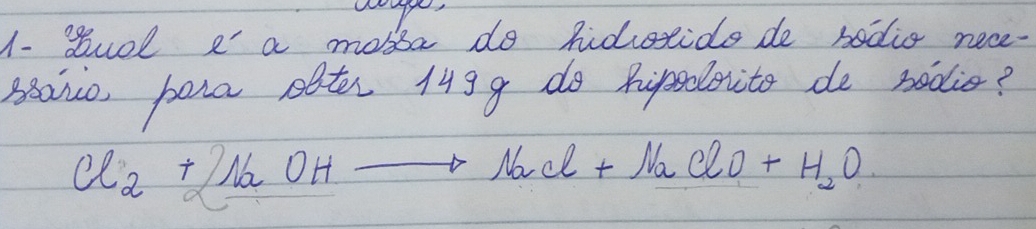 1- Qual é a massa do hidroxido de sódio nece-
ssária para obter 149 g do hipoclorito de sódio?
Cl₂ + 2 Na OH → Na Cl + Na ClO + H₂O